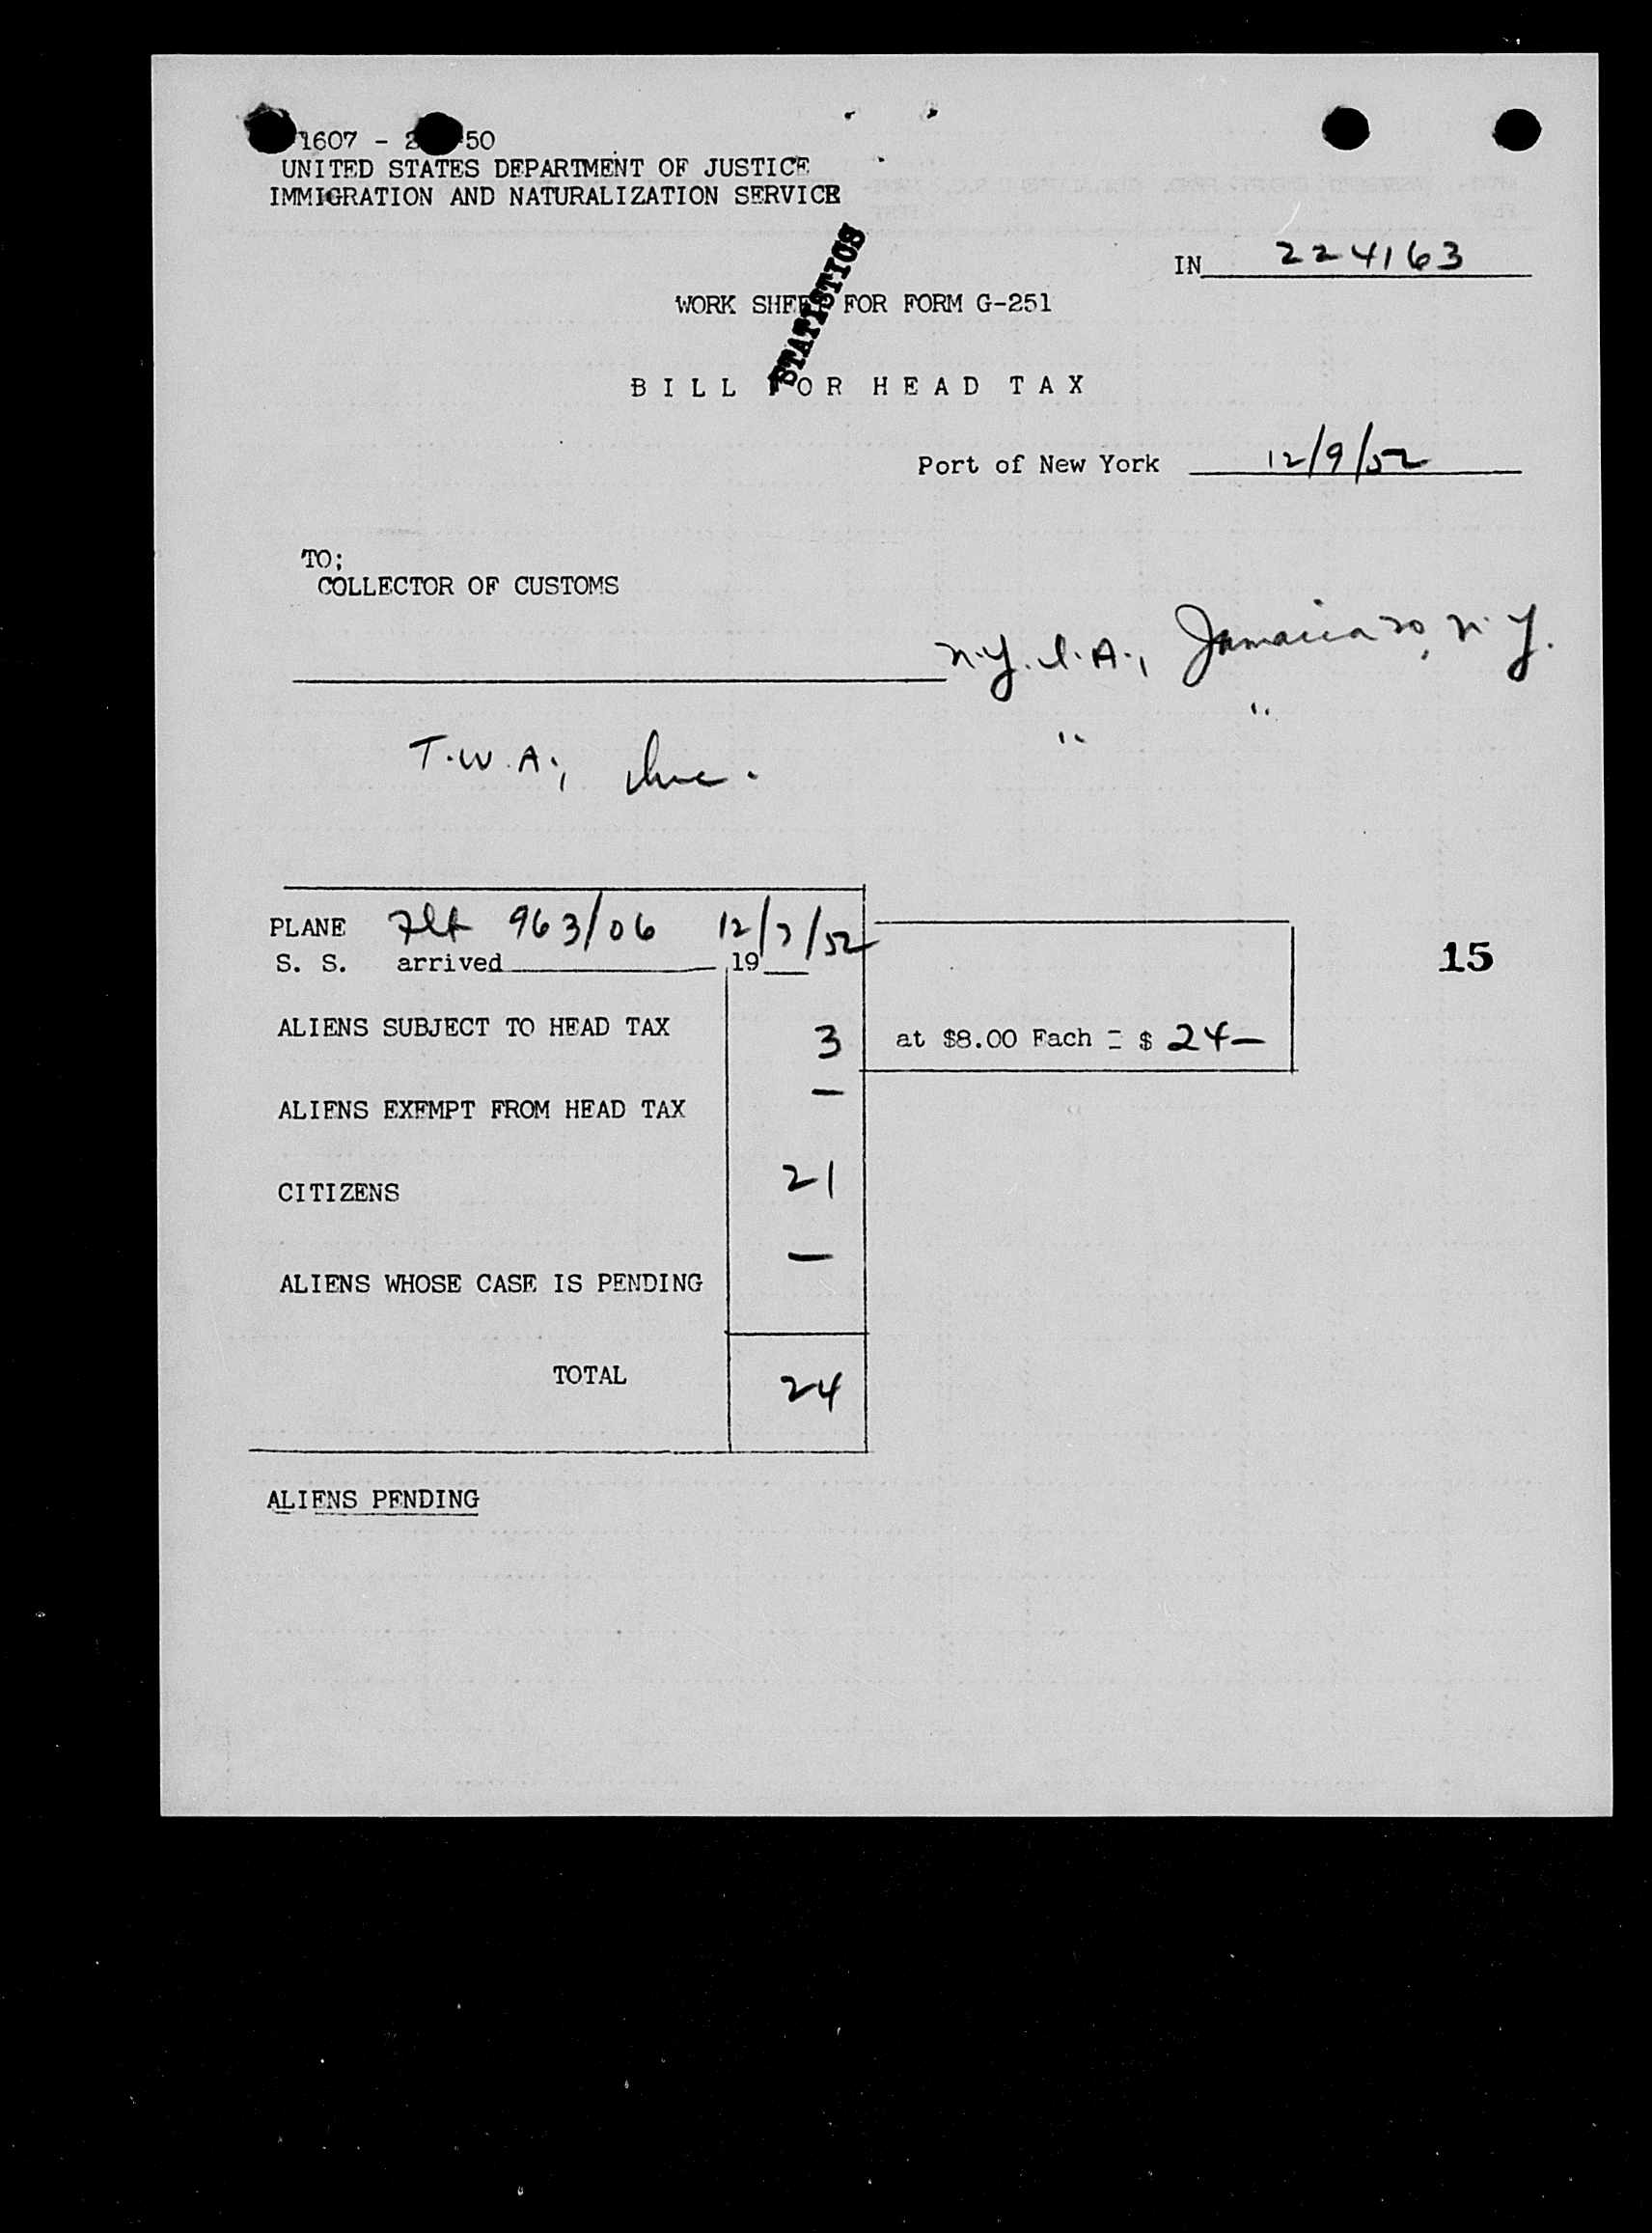 1607 - 2 50
UNITED STATES DEPARTMENT OF JUSTICE
IMMIGRATION AND NATURALIZATION SERVICE
STATISTICS
IN 224163
WORK SHEET FOR FORM G-251
BILL FOR HEAD TAX
Port of New York 12/9/52
TO;
COLLECTOR OF CUSTOMS
N.Y.I.A., Jamaica 20, N.Y.
T.W.A., Inc. " "
PLANE Flt 963/06 12/7/52
S. S. arrived 19
15
ALIENS SUBJECT TO HEAD TAX 3 at $8.00 Each = $ 24—
ALIENS EXEMPT FROM HEAD TAX —
CITIZENS 21
ALIENS WHOSE CASE IS PENDING —
TOTAL 24
ALIENS PENDING